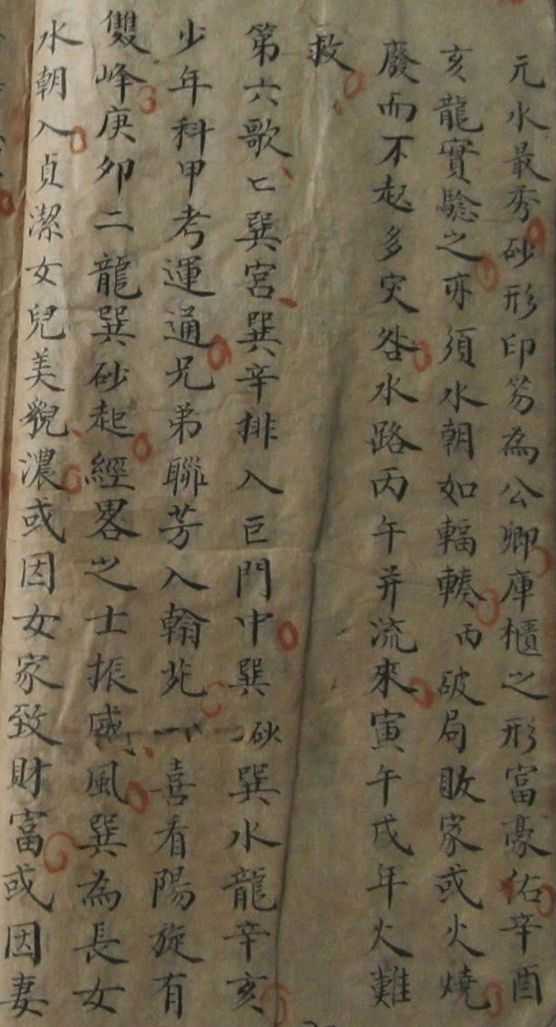 元水最秀砂形印笏為公卿庫櫃之形富豪佑辛酉
亥龍實驗之亦須水朝如輻輳丙破局敗家或火燒
廢而不起多災咎水路丙午并流來寅午戌年火難
救
第六歌亡巽宮巽辛排入巨門中巽砂巽水龍辛亥
少年科甲考運通兄弟聯芳入翰北一喜看陽旋有
雙峰庚卯二龍巽砂起經畧之士振威風巽為長女
水朝入貞潔女兒美貌濃或因女家致財富或因妻